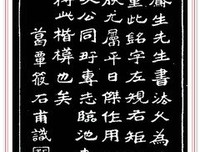 生先生書法久為
重此銘字左規右矩
尤屬平日傑作用
公同好專志臨池
此楷模也矣
葛覃筱石甫識